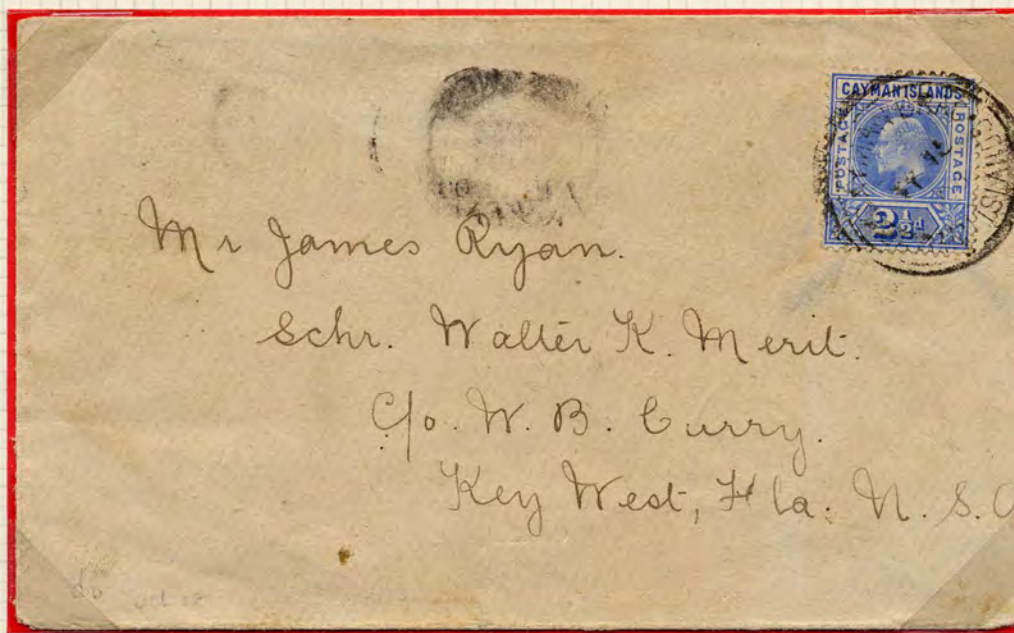 CAYMAN ISLANDS
POSTAGE POSTAGE
2½d
Mr James Ryan.
Schr. Walter K. Merit.
C/o. W. B. Curry.
Key West, Fla. U. S.